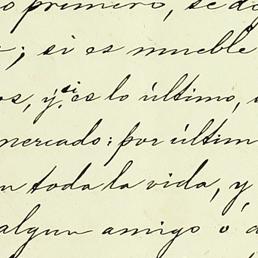 o primero, se d
; si es mueble
os, y si es lo último,
mercado; por últim
n toda la vida, y
algun amigo ó d